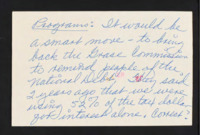 Programs: It would be
a smart move - to bring
back the Grace Commission
to remind people of the
National Debt. They said
2 years ago that we were
using 52% of the tax dollar
for interest alone. Correct?